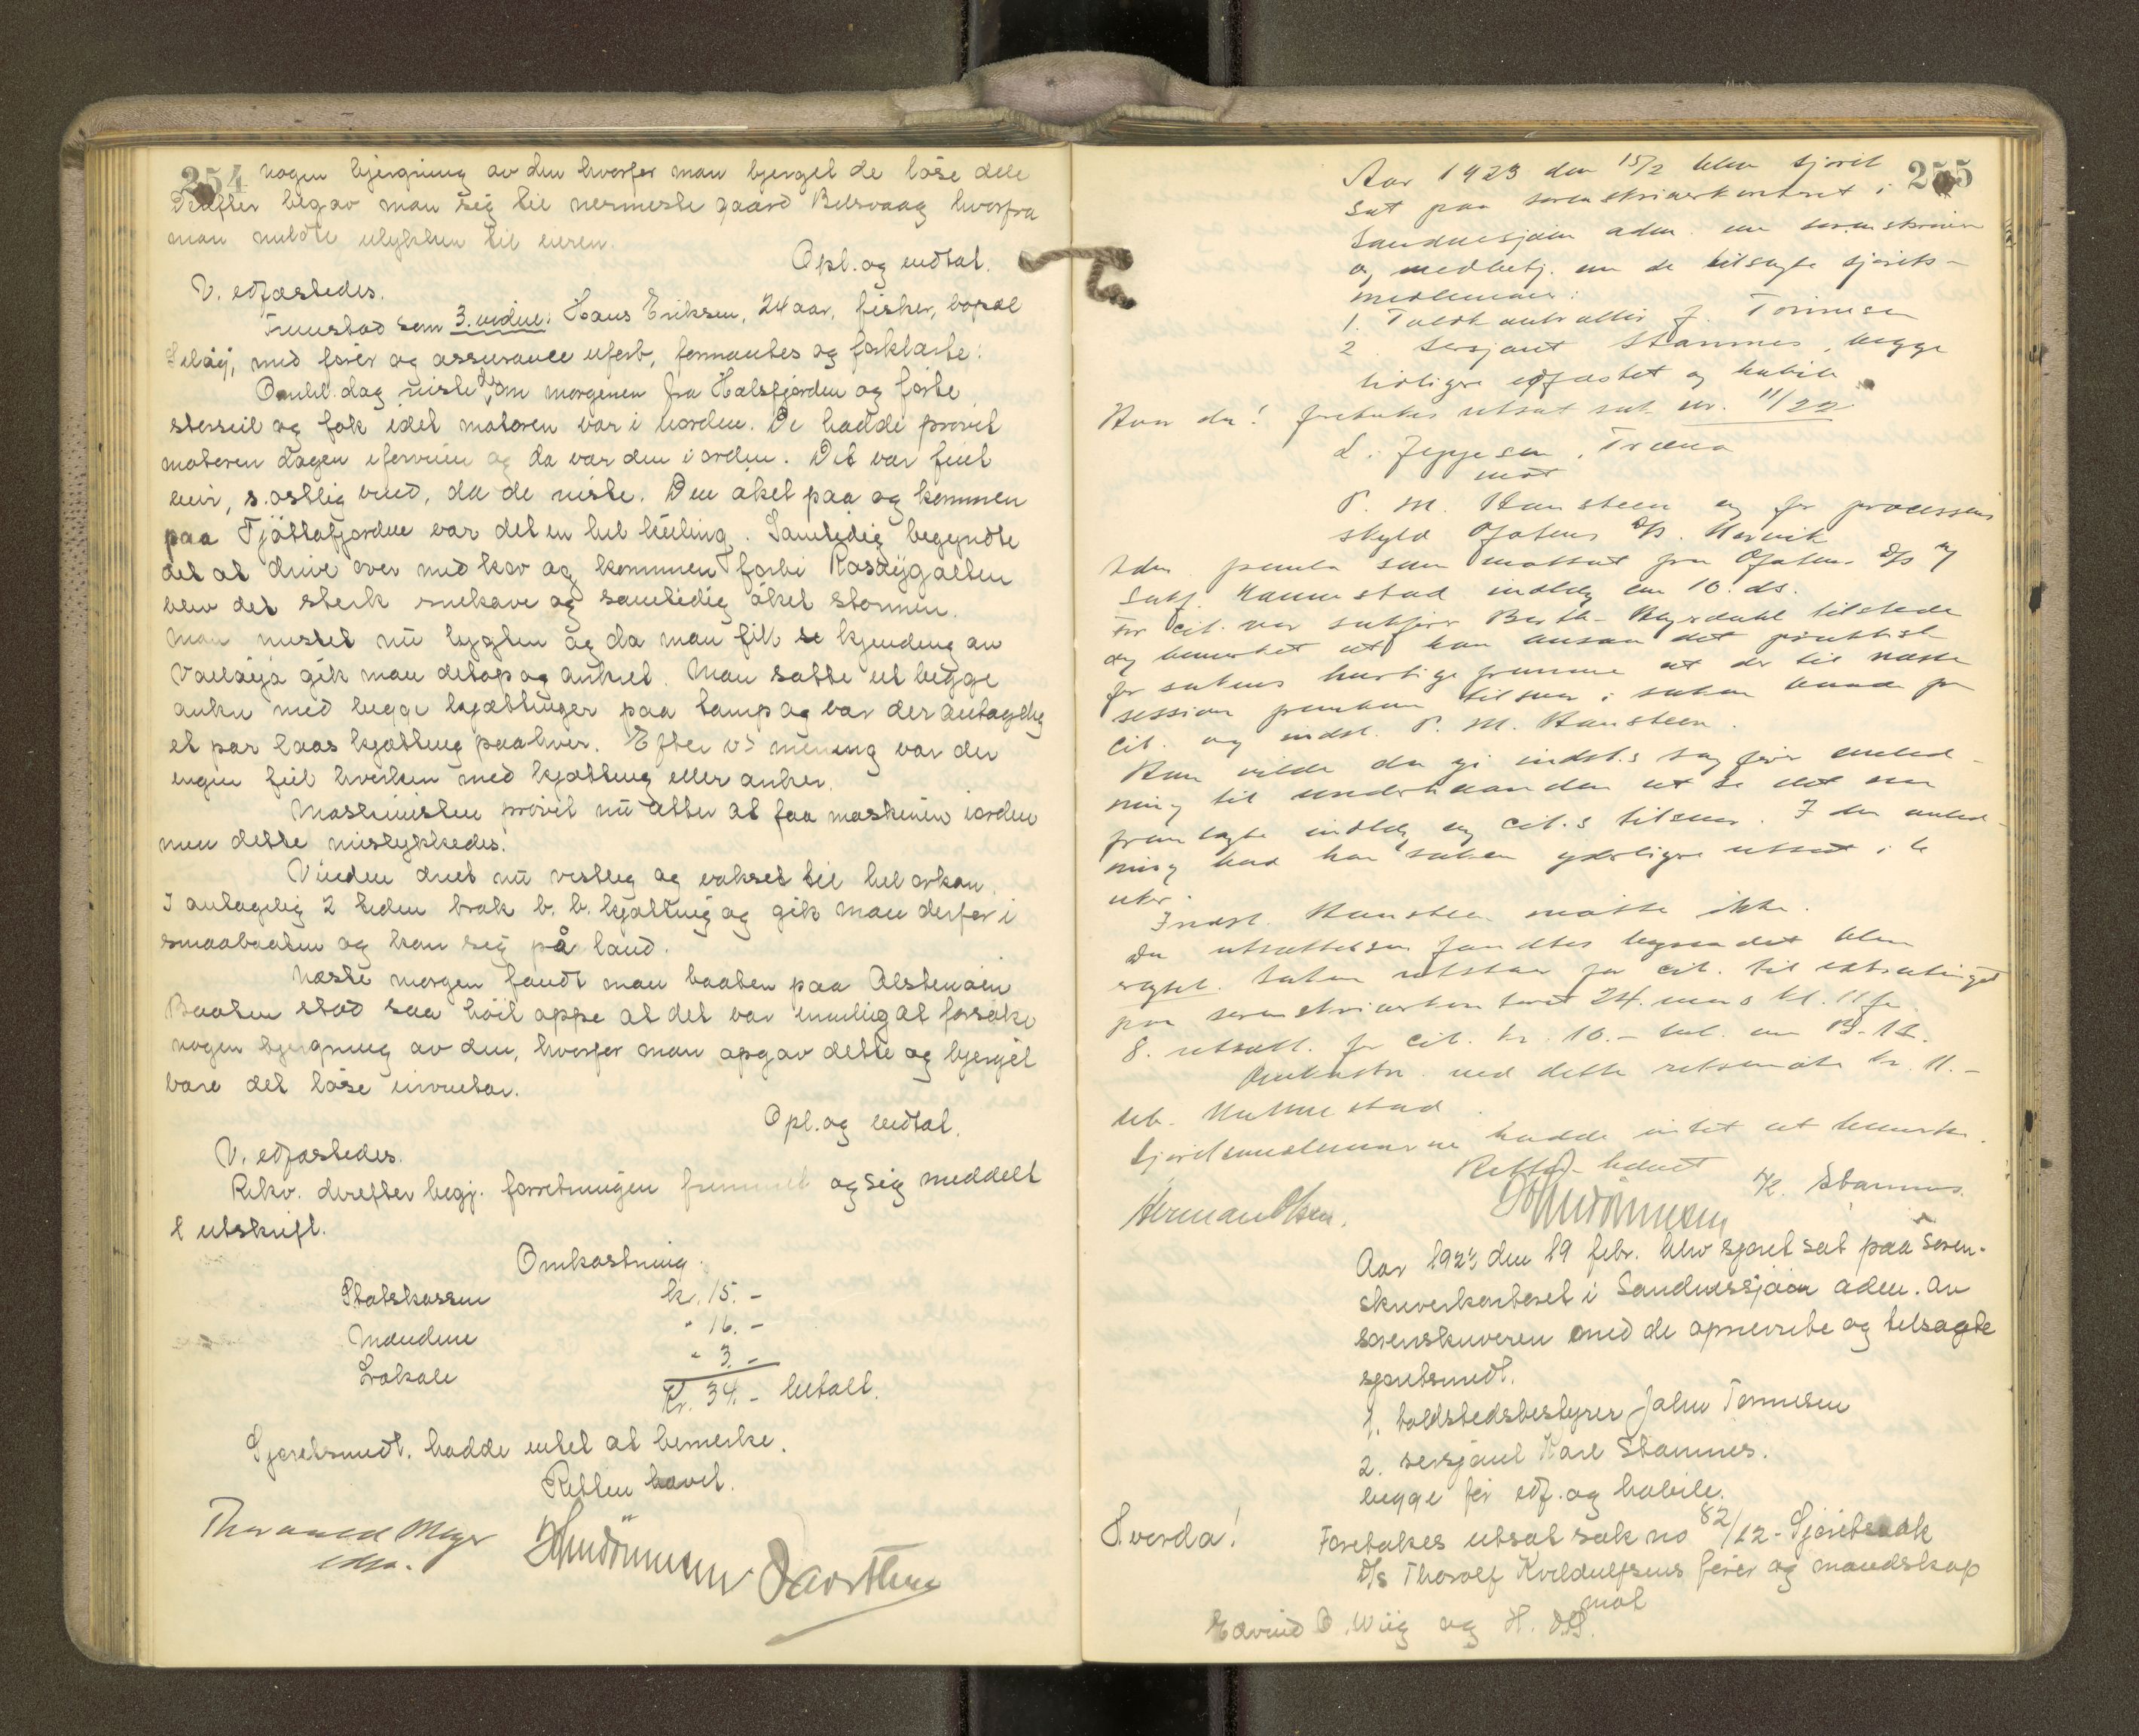 254
nogen bjergning av den hvorfor man bjerget de løse dele
Derefter begav man sig til nermeste gaard Belsvaag hvorfra
man meldte ulykken til eieren.
Opl. og vedtat.
V. edfæstedes.
Fremstod som 3. vidne: Hans Eriksen, 24 aar, fisker, bopæl
Seløy, med fører og assurance uforb, formantes og forklarte:
Omhl. dag reiste de om morgenen fra Halsfjorden og førte
storseil og fok idet motoren var i uorden. De hadde prøvet
motoren dagen iforveien og da var den i orden. Det var fint
veir, s. østlig vind, da de reiste. Den øket paa og kommen
paa Tjøttafjorden var det en hel kuling. Samtidig begyndte
det at drive over med kav og kommen forbi Rosøygalten
blev det sterk snekave og samtidig øket stormen.
Man mistet nu lygten og da man fik se kjending av
gik man det op og ankret. Man satte ut begge
anker med begge kjættinger paa tamp og var der antagelig
et par laas kjætting paa hver. Efter v's mening var der
ingen feil hverken med kjætting eller anker.
Maskinisten prøvet nu atter at faa maskinen i orden
men dette mislykkedes.
Vinden dreiet nu vestlig og vokset til hel orkan.
I antagelig 2 tiden brak b. b. kjætting og gik man derfor i
smaabaaten og kom sig på land.
Næste morgen fandt man baaten paa Alstenøen
Baaten stod saa høit oppe at det var umulig at forsøke
nogen bjergning av den, hvorfor man opgav dette og bjerget
bare det løse inventar.
Opl. og vedtat.
V. edfæstedes.
Rekv. derefter begj. forretningen fremmet og sig meddelt
1 utskrift.
Omkostning.
Statskassen kr. 15.-
Mændene " 16.-
Lokale " 3.-
Kr. 34.- betalt.
Sjøretsmedl. hadde intet at bemerke.
Retten hævet.
Thorvald Meyer
255
Aar 1923 den 15/2 blev sjøret
sat paa sorenskriverkontoret i
Sandnessjøen adm. av sorenskriveren
og medbetj. av de tilsagte sjørets-
medlemmer:
1. J. Tønnesen
2. sersjant Stamnes, begge
tidligere edfæstet og habile
Hvor da! foretokes utsat sak nr. 11/22
L. Jeppesen, Træna
mot
P. M. Hansteen og for processens
skyld Ofotens D/s. Narvik
som mottat fra Ofotens D/s og
indlæg av 10. ds.
For cit. var sakfører tilstede
og bemerket at han ansaa det
for sakens hurtige fremme at der til næste
session tilsvar i saken baade fra
cit. og indst. P. M. Hansteen.
Han vilde da gi indst.s sagfører anled-
ning til underhaanden at se det nu
fremlagte indlæg og cit.s tilsvar. I den anled-
ning bad han saken yderligere utsat i
uker.
Indst. Hansteen møtte ikke.
Da utsættelsen fandtes begrundet blev
avsagt. Saken utstaar for cit. til extraretinget
paa sorenskriverkontoret 24. mars kl. 11 fm.
8. utsætt. for cit. kr. 10.-
Omkostn. ved dette retsmøte kr. 11.-
Sjøretsmedlemmerne hadde intet at bemerke.
Retten hævet
Herman Olsen. K. Stamnes.
Aar 1923 den 19 febr. blev sjøret sat paa soren-
skriverkontoret i Sandnessjøen adm. av
sorenskriveren med de opnevnte og tilsagte
sjøretsmedl.
1. toldstedsbestyrer John Tønnesen
2. sersjant Karl Stamnes.
begge før edf. og habile.
Hvorda! Foretokes utsat sak no 82/22 - Sjøretssak
D/s Thorolf Kveldulfsens fører og mandskap
mot
Edvind O. Wiig og H. D.S.